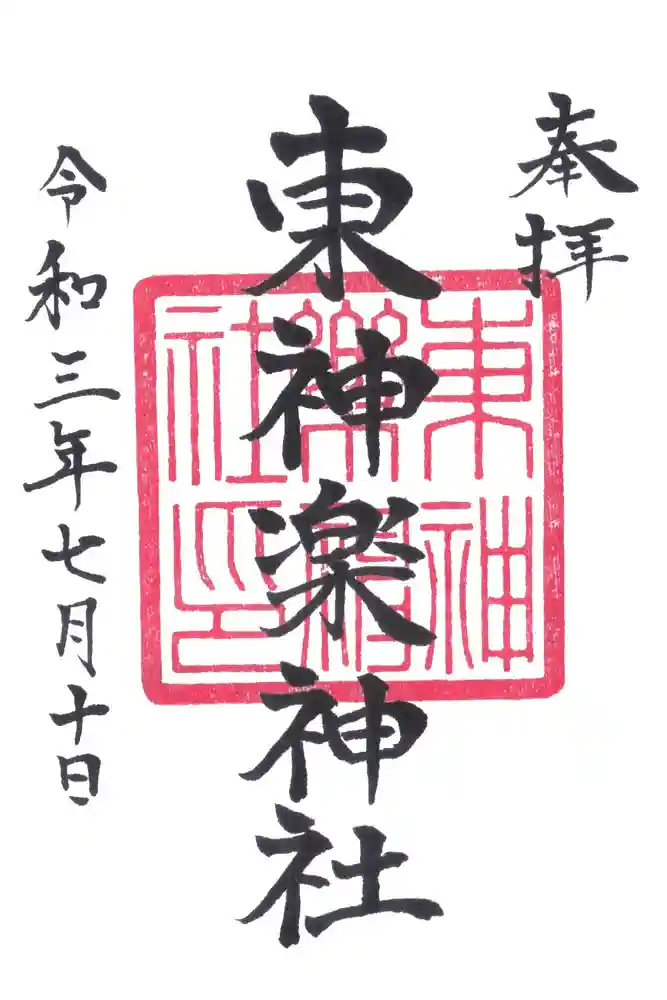 奉拝
東神楽神社
東神
楽神
社印
令和三年七月十日